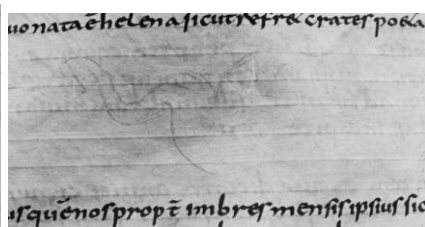 uonata ē helena sicut refr& crates po&a
usquē nos propt̄ imbres mensis ipsius sic